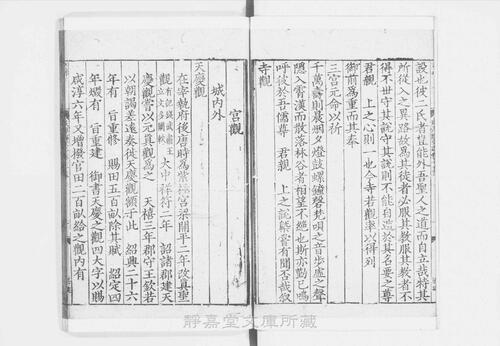 設也彼二氏者豈能外吾聖人之道而自立哉特其
所從入之異路故爲其徒者必服其教服其教者不
得不世守其說守其說則不能自於其名要之尊
君親　上之心則一也今寺若觀率以得列
御前爲重而其奉
三宮元命以祈
千萬壽則晨烟夕燈鼓螺鐘磬梵唄之音步虛之聲
隱入霄漢而散落林谷者相望不絕也斯亦勤已嗚
呼彼於吾儒尊　君親　上之說槩嘗有聞否哉敘
寺觀
宮觀
城內外
天慶觀
在宰執府後唐時爲紫極宮梁開平二年改真聖
觀有記錢武肅王立文多闕　大中祥符二年　詔諸郡建天
慶觀嘗以元真觀爲之　天禧三年郡守王欽若
以朝謁差遠奏徙天慶觀額于此　紹興二十六
年有　旨重修　賜田五百畝除其賦　紹定四
年燬有　旨重建　御書天慶之觀四大字以賜
咸淳六年又增撥官田二百畝給之觀內有
靜嘉堂文庫所藏